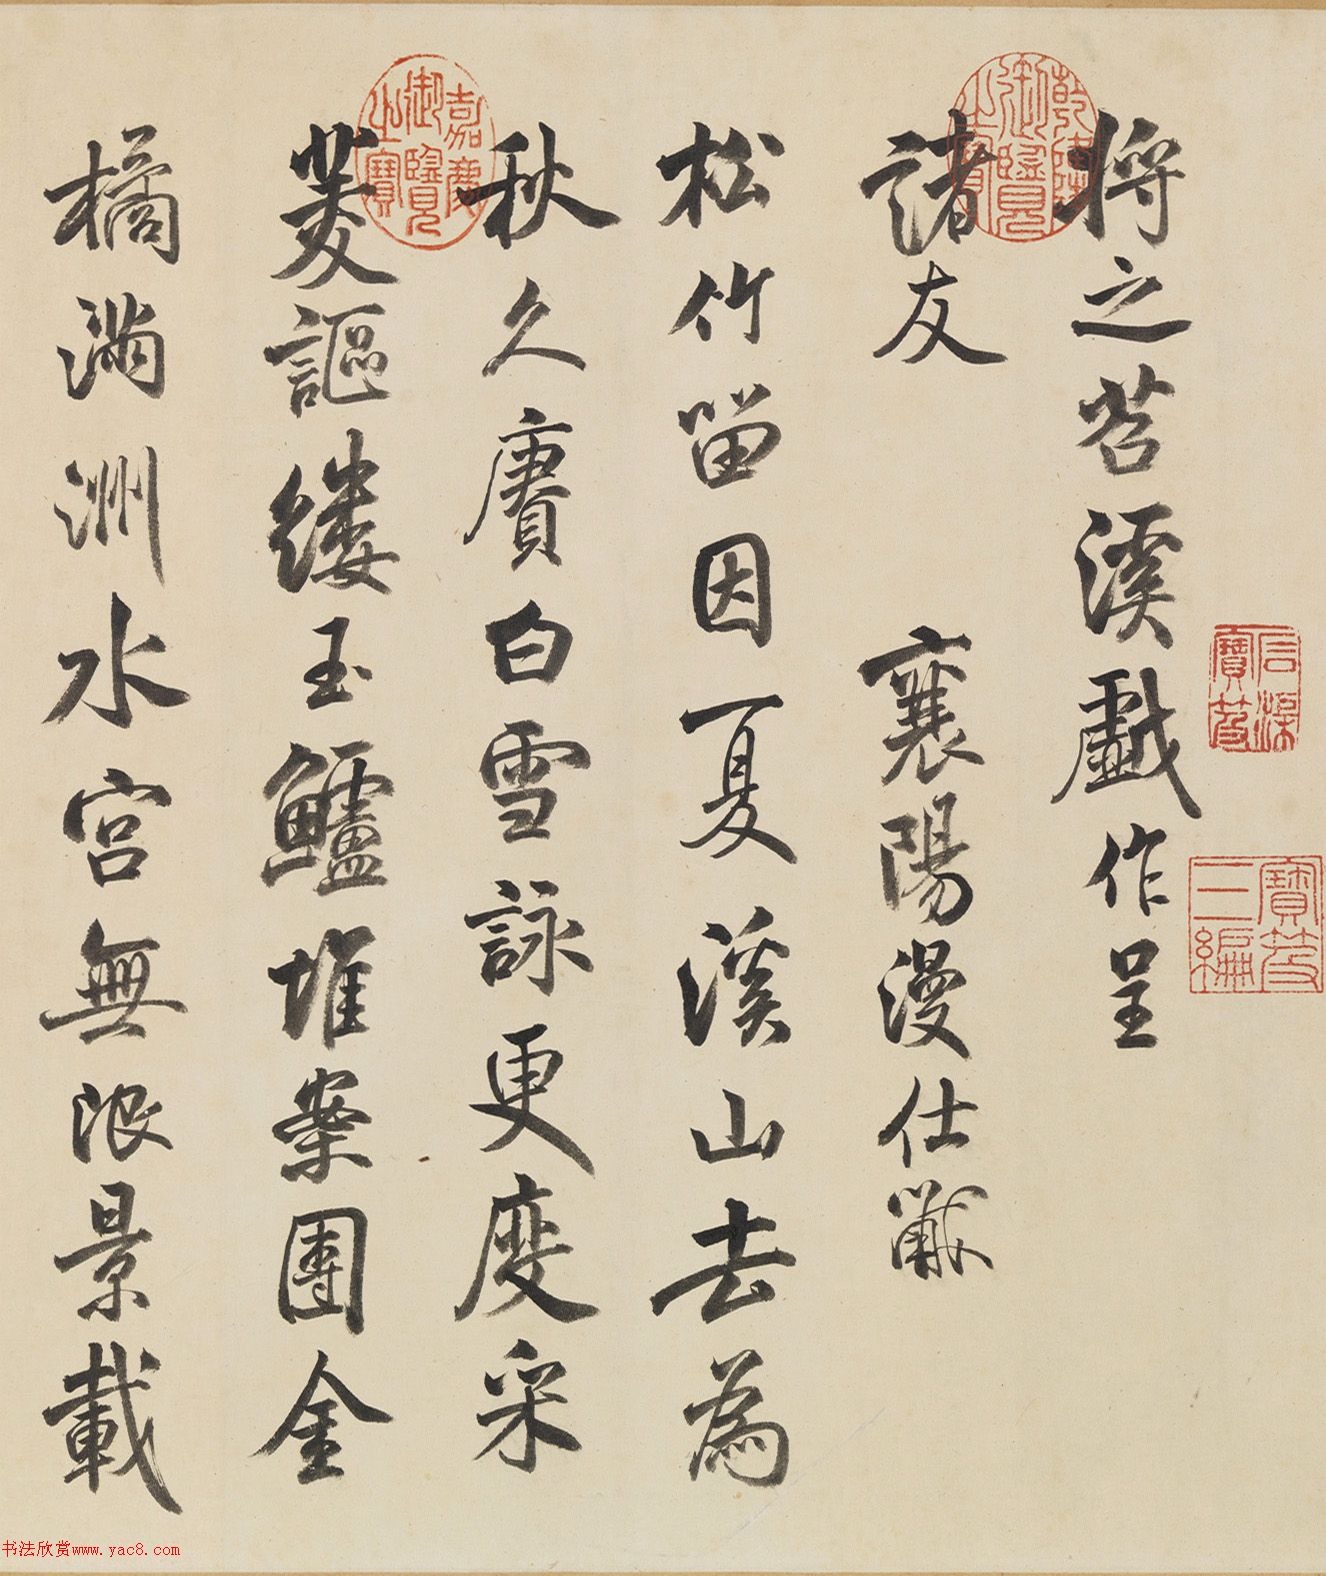 將之苕溪戲作呈
諸友
襄陽漫仕黻
松竹留因夏溪山去為
秋久賡白雪詠更度采
菱謳縷玉鱸堆案團金
橘滿洲水宮無限景載
乾隆御覽之寶
嘉慶御覽之寶
石渠寶笈
寶笈三編
书法欣赏www.yac8.com